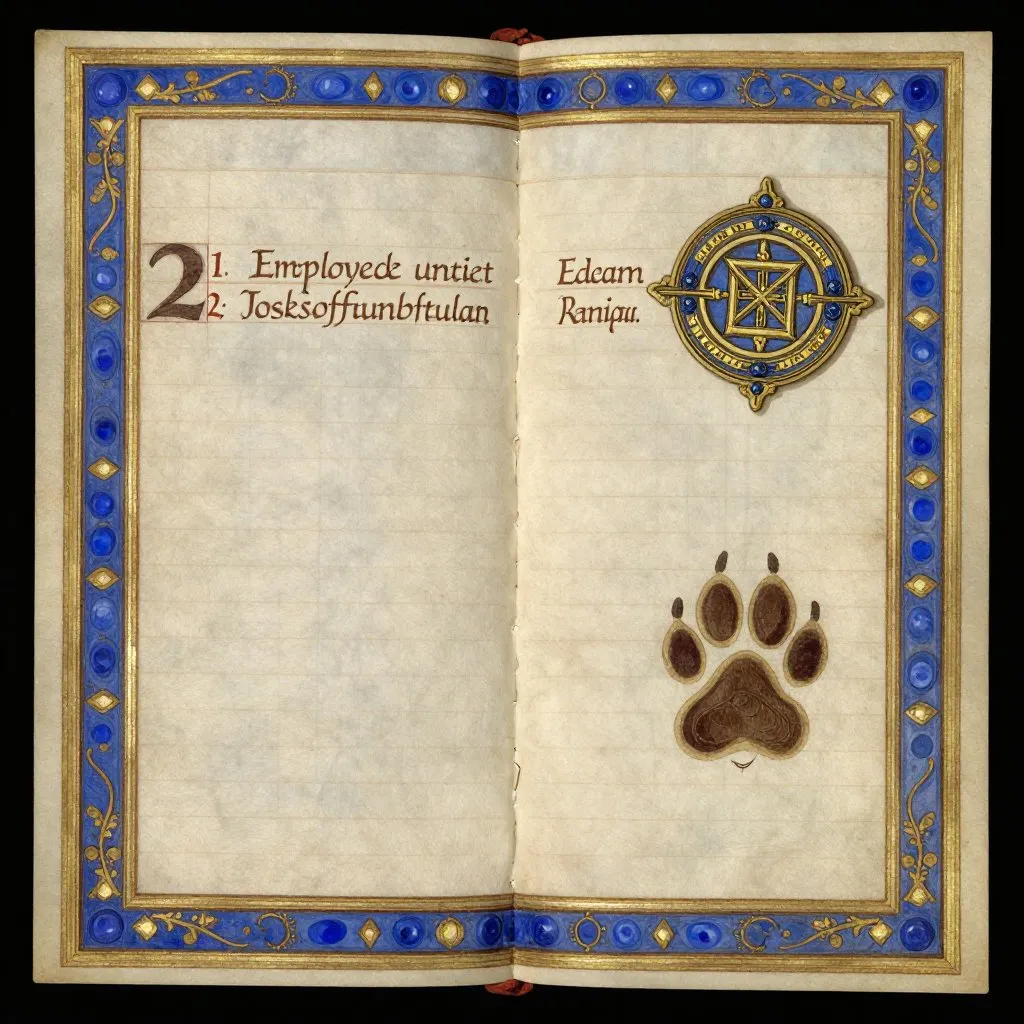 2
1. Employeck untiet
2: Josksoffumbftulan
Edeam
Ranipu.